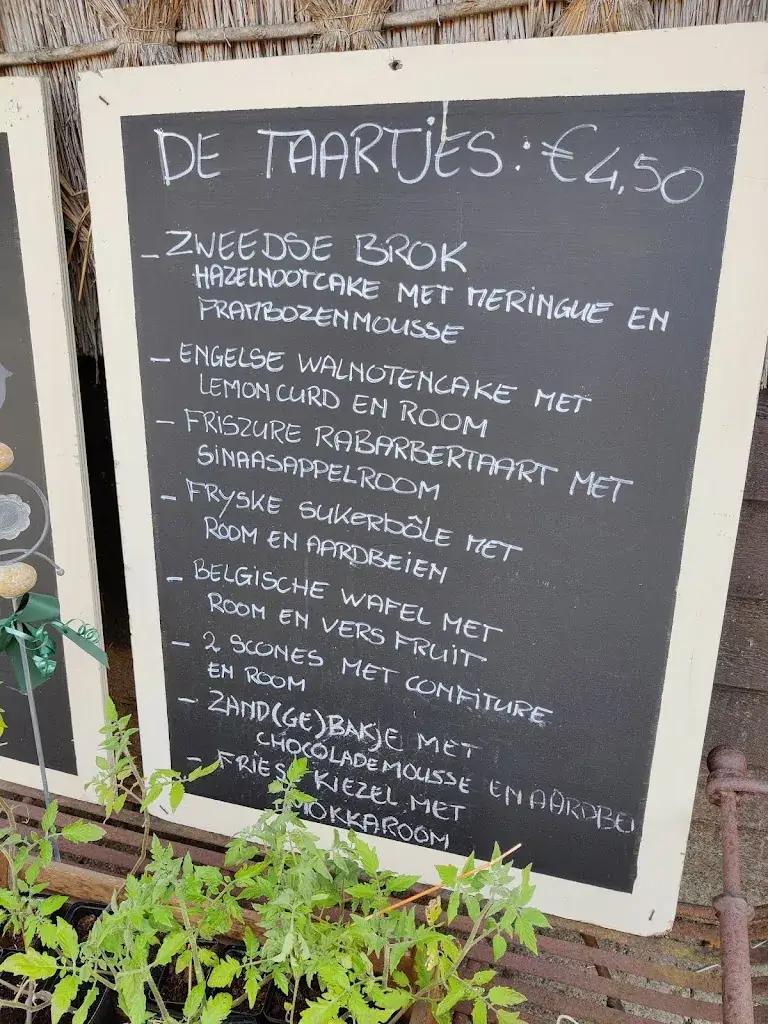 DE TAARTJES: €4,50
- ZWEEDSE BROK
HAZELNOOTCAKE MET MERINGUE EN
FRAMBOZENMOUSSE
- ENGELSE WALNOTENCAKE MET
LEMON CURD EN ROOM
- FRISZURE RABARBERTAART MET
SINAASAPPELROOM
- FRYSKE SUKERBÔLE MET
ROOM EN AARDBEIEN
- BELGISCHE WAFEL MET
ROOM EN VERS FRUIT
- 2 SCONES MET CONFITURE
EN ROOM
- ZAND(GE)BAKJE MET
CHOCOLADEMOUSSE EN AARDBEI
- FRIESE KIEZEL MET
MOKKAROOM